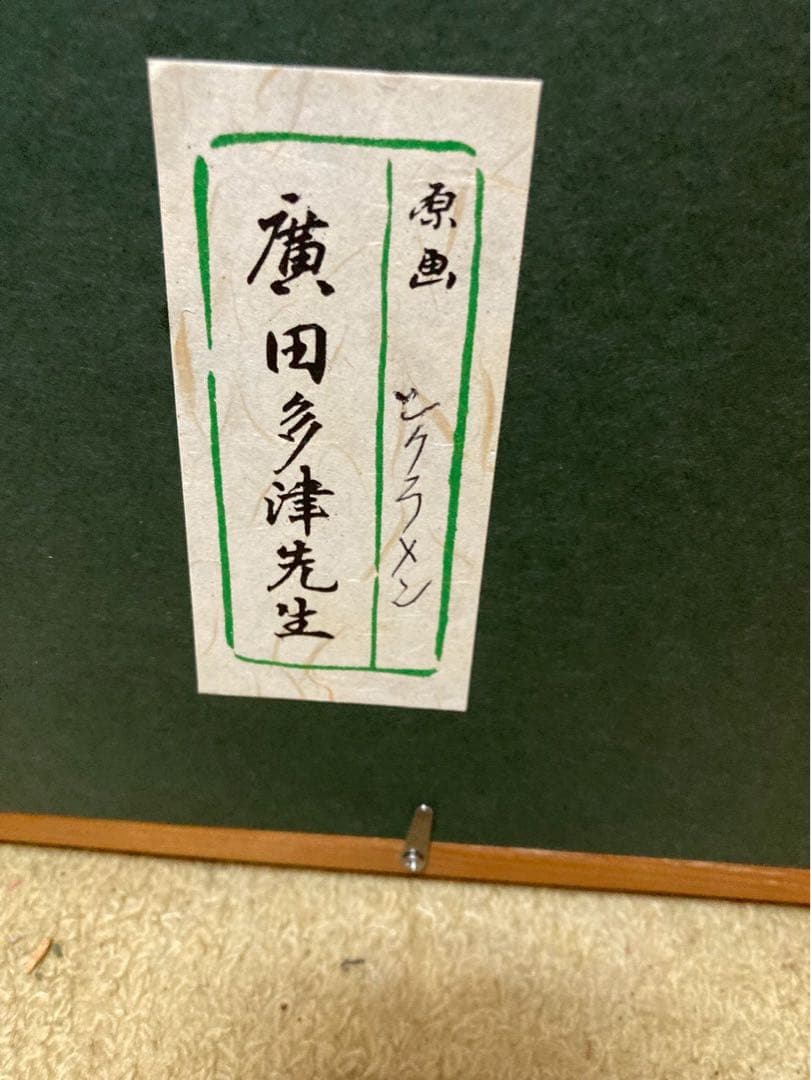 原画 シクラメン
廣田多津先生